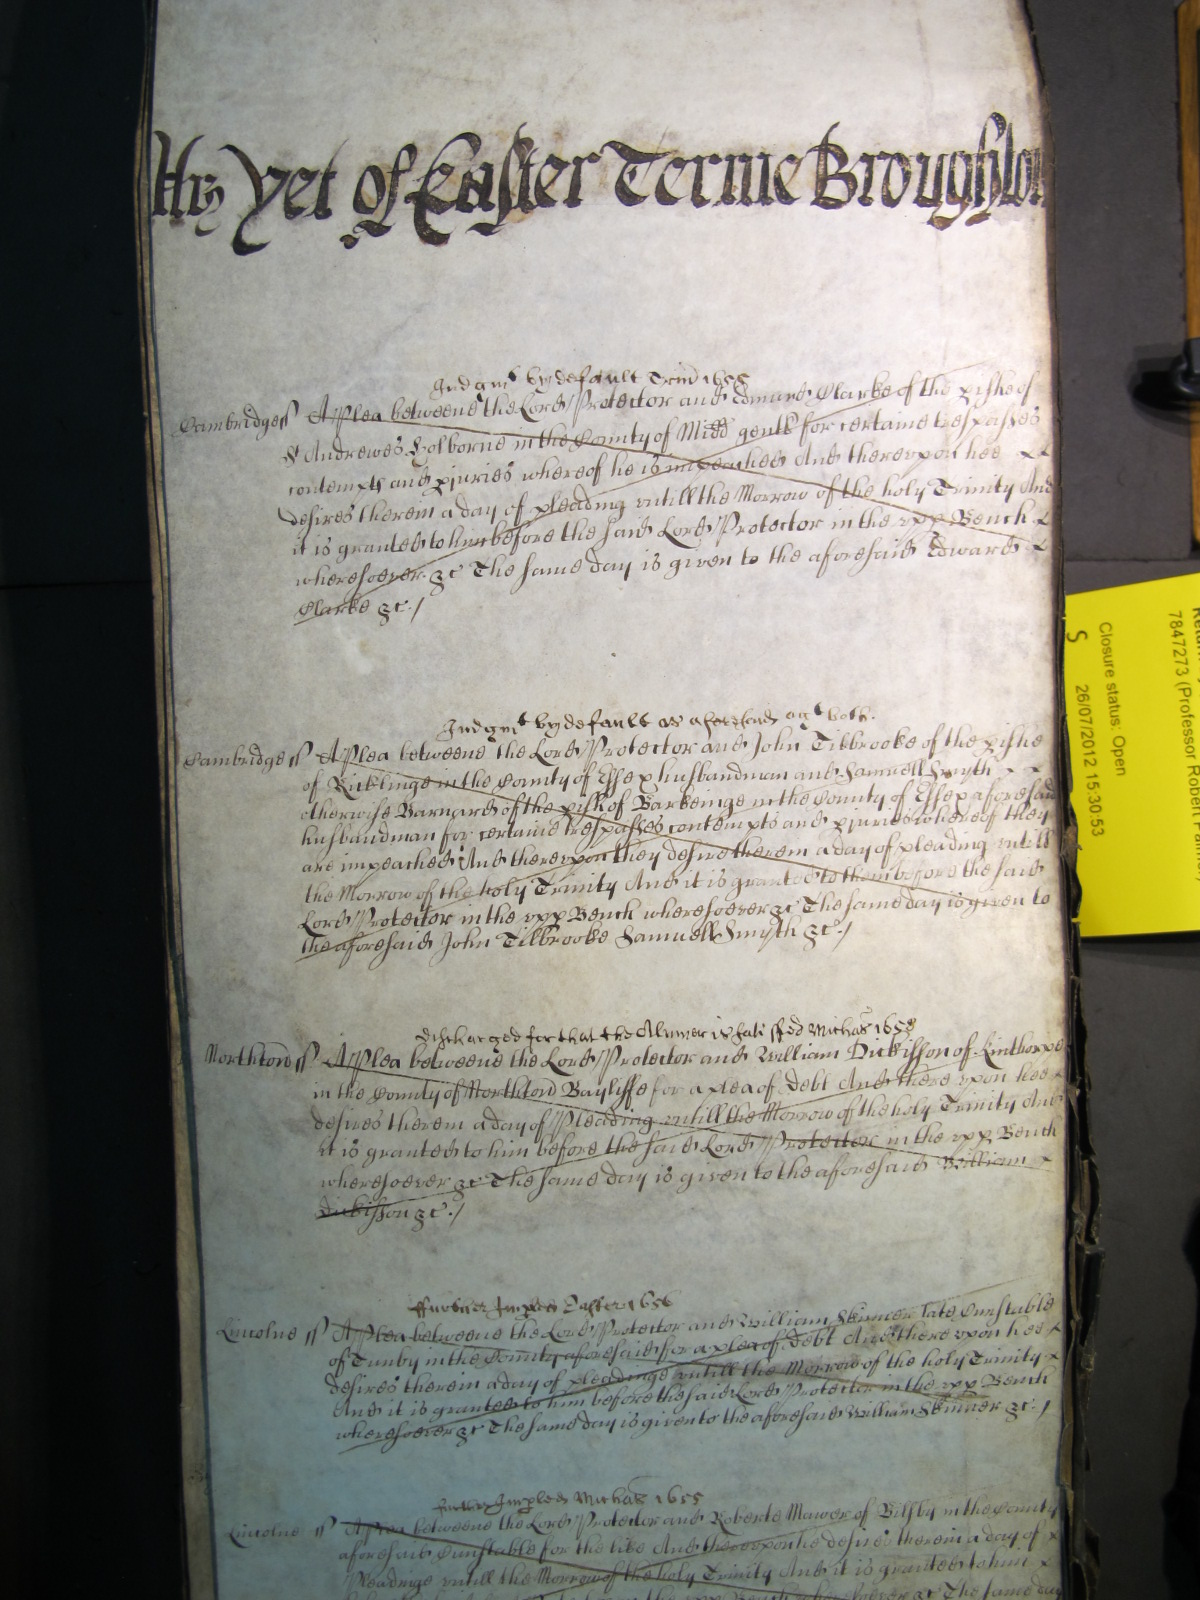 Yet of Easter Terme Broughton
Judgmt by default Trin 1655
Cambridge ss A Plea betweene the Lord Protector and Edward Clarke of the pishe of
St Andrewes Holborne in the County of Midd gentl for certaine trespasses
contempts and injuries whereof he is impeached And therevpon hee
desires therein a day of pleading vntill the Morrow of the holy Trinity And
it is granted to him before the said Lord Protector in the vpp Bench
wheresoever &c The same day is given to the aforesaid Edward
Clarke &c./
Judgmt by default as aforesaid agt both.
Cambridge ss A Plea betweene the Lord Protector and John Tilbrooke of the pishe
of Ricklinge in the County of Essex husbandman and Samuell Smyth
otherwise Barnard of the pish of Barkeinge in the County of Essex aforesaid
husbandman for certaine trespasses contempts and injuries whereof they
are impeached And therevpon they desire therein a day of pleading vntill
the Morrow of the holy Trinity And it is granted to them before the said
Lord Protector in the vpp Bench wheresoever &c The same day is given to
the aforesaid John Tilbrooke Samuell Smyth &c./
discharged for that the is satisfied Michas 1658
Northton ss A Plea betweene the Lord Protector and William Dickisson of Linthorpe
in the County of Northton Bayliffe for a plea of debt And there vpon hee
desires therein a day of Pleading vntill the Morrow of the holy Trinity And
it is granted to him before the said Lord Protector in the vpp Bench
wheresoever &c The same day is given to the aforesaid William
Dickisson &c./
further Impled Easter 1656
Lincolne ss A Plea betweene the Lord Protector and William Skinner late Cunstable
of Tunby in the County aforesaid for a plea of debt And there vpon hee
desires therein a day of pleadinge vntill the Morrow of the holy Trinity
And it is granted to him before the said Lord Protector in the vpp Bench
wheresoever &c The same day is given to the aforesaid William Skinner &c./
further Impled Michas 1655
Lincolne ss A Plea betweene the Lord Protector and Roberte Mawer of Bilsby in the County
aforesaid Cunstable for the like And therevpon he desires therein a day of
Pleadinge vntill the Morrow of the holy Trinity And it is granted to him
the vpp Bench &c The same day
7847273 (Professor Robert
Closure status: Open
26/07/2012 15:30:53
S